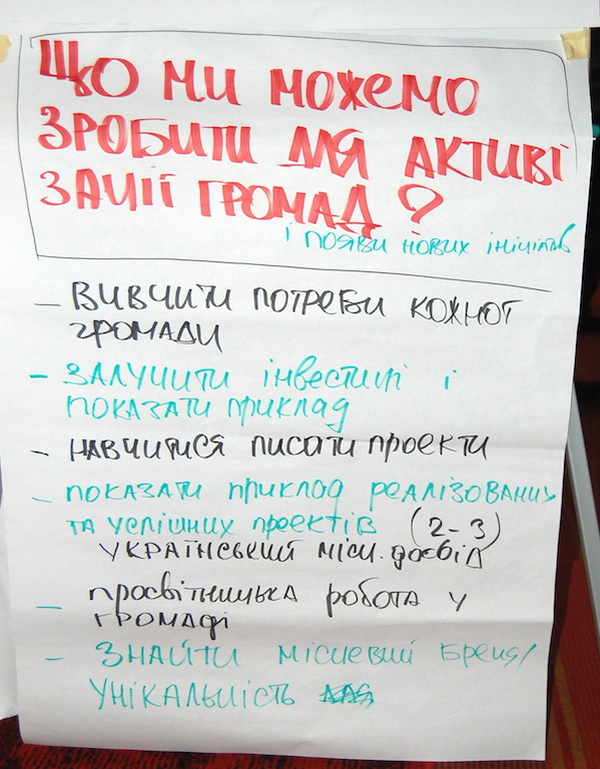 ЩО МИ МОЖЕМО
ЗРОБИТИ ДЛЯ АКТИВІ
ЗАЦІЇ ГРОМАД?
і появи нових ініціатив
– ВИВЧИТИ ПОТРЕБИ КОЖНОЇ
ГРОМАДИ
– ЗАЛУЧИТИ ІНВЕСТИЦІЇ І
ПОКАЗАТИ ПРИКЛАД
– НАВЧИТИСЯ ПИСАТИ ПРОЕКТИ
– ПОКАЗАТИ ПРИКЛАД РЕАЛІЗОВАНИХ
ТА УСПІШНИХ ПРОЕКТІВ (2-3)
УКРАЇНСЬКИЙ МІСЦ. ДОСВІД
– ПРОСВІТНИЦЬКА РОБОТА У
ГРОМАДІ
– ЗНАЙТИ МІСЦЕВИЙ БРЕНД/
УНІКАЛЬНІСТЬ